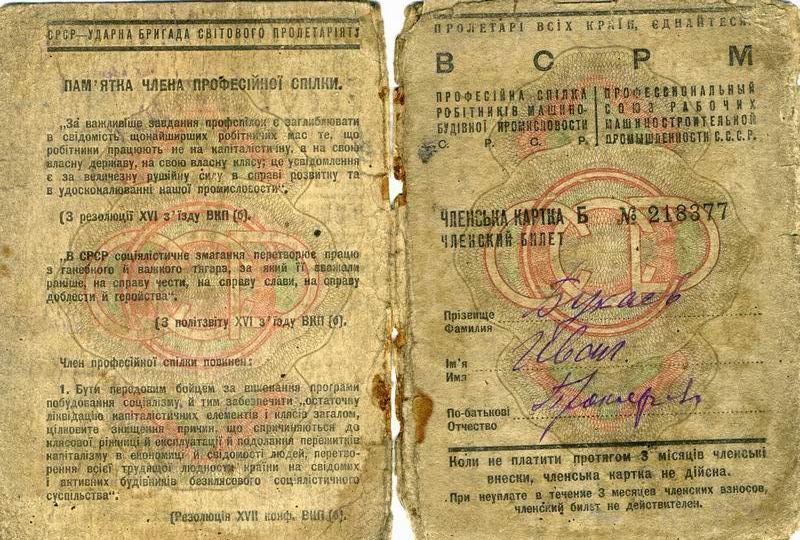 СРСР—УДАРНА БРИГАДА СВІТОВОГО ПРОЛЕТАРІЯТУ
ПАМ'ЯТКА ЧЛЕНА ПРОФЕСІЙНОЇ СПІЛКИ.
„За важливіше завдання профспілок є заглиблювати
в свідомість щонайширших робітничих мас те, що
робітники працюють не на капіталістичну, а на свою
власну державу, на свою власну клясу; це усвідомлення
є за величезну рушійну силу в справі розвитку та
в удосконалюванні нашої промисловости“.
(З резолюції XVI з'їзду ВКП (б).
„В СРСР соціялістичне змагання перетворює працю
з ганебного й важкого тягара, за який її вважали
раніше, на справу чести, на справу слави, на справу
доблести й геройства“.
(З політзвіту XVI з'їзду ВКП (б).
Член професійної спілки повинен:
1. Бути передовим бойцем за виконання програми
побудовання соціялізму, й тим забезпечити „остаточну
ліквідацію капіталістичних елементів і клясів загалом,
цілковите знищення причин, що спричиняються до
клясової ріжниці й експлуатації й подолання пережитків
капіталізму в економіці й свідомості людей, перетво-
рення всієї трудящої людности країни на свідомих
і активних будівників безклясового соціялістичного
суспільства“.
(Резолюція XVII конф. ВКП (б).
ПРОЛЕТАРІ ВСІХ КРАЇН, ЄДНАЙТЕСЯ.
В С Р М
ПРОФЕСІЙНА СПІЛКА
РОБІТНИКІВ МАШИНО-
БУДІВНОЇ ПРОМИСЛОВОСТИ
С. Р. С. Р.
ПРОФЕССИОНАЛЬНЫЙ
СОЮЗ РАБОЧИХ
МАШИНОСТРОИТЕЛЬНОЙ
ПРОМЫШЛЕННОСТИ С.С.С.Р.
ЧЛЕНСЬКА КАРТКА Б № 218377
ЧЛЕНСКИЙ БИЛЕТ
Прізвище
Фамилия
Ім'я Иван
Имя
По-батькові
Отчество
Коли не платити протягом 3 місяців членські
внески, членська картка не дійсна.
При неуплате в течение 3 месяцев членских взносов,
членский билет не действителен.